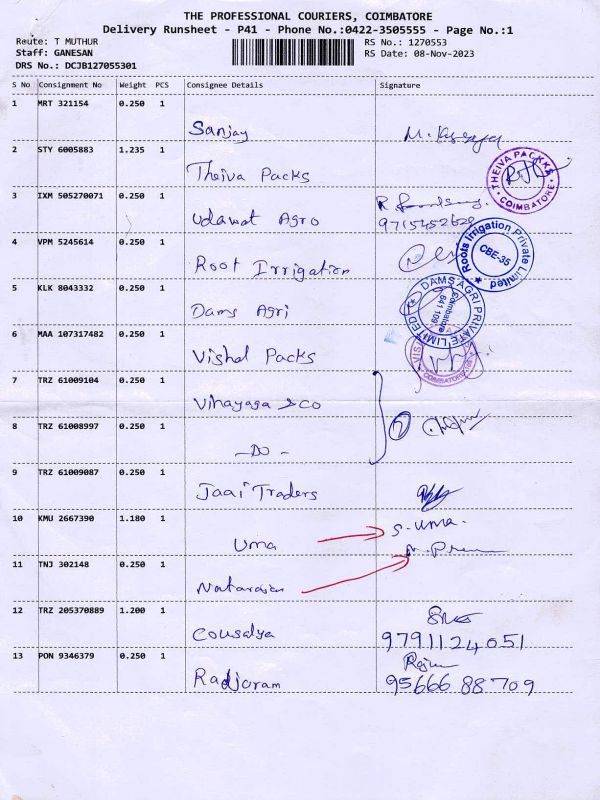 THE PROFESSIONAL COURIERS, COIMBATORE
Delivery Runsheet - P41 - Phone No.:0422-3505555 - Page No.:1
Route: T MUTHUR RS No.: 1270553
Staff: GANESAN RS Date: 08-Nov-2023
DRS No.: DCJB127055301
S No Consignment No Weight PCS Consignee Details Signature
1 MRT 321154 0.250 1
Sanjay
2 STY 6005883 1.235 1
Theiva Packs
THEIVA PACKKS * COIMBATORE *
3 IXM 505270071 0.250 1
Udawat Agro
4 VPM 5245614 0.250 1
Root Irrigation
Roots Irrigation Private Limited
CBE-35
5 KLK 8043332 0.250 1
Dams Agri
DAMS AGRI PRIVATE LIMITED
Coimbatore
641 109
6 MAA 107317482 0.250 1
Vishal Packs
COIMBATORE
7 TRZ 61009104 0.250 1
Vinayaga & Co
8 TRZ 61008997 0.250 1
-DO-
9 TRZ 61009087 0.250 1
Jaai Traders
10 KMU 2667390 1.180 1
Uma S. uma.
11 TNJ 302148 0.250 1
Natarajan
12 TRZ 205370889 1.200 1
Cousalya 9791124051
13 PON 9346379 0.250 1
Radjoram 95666 88709